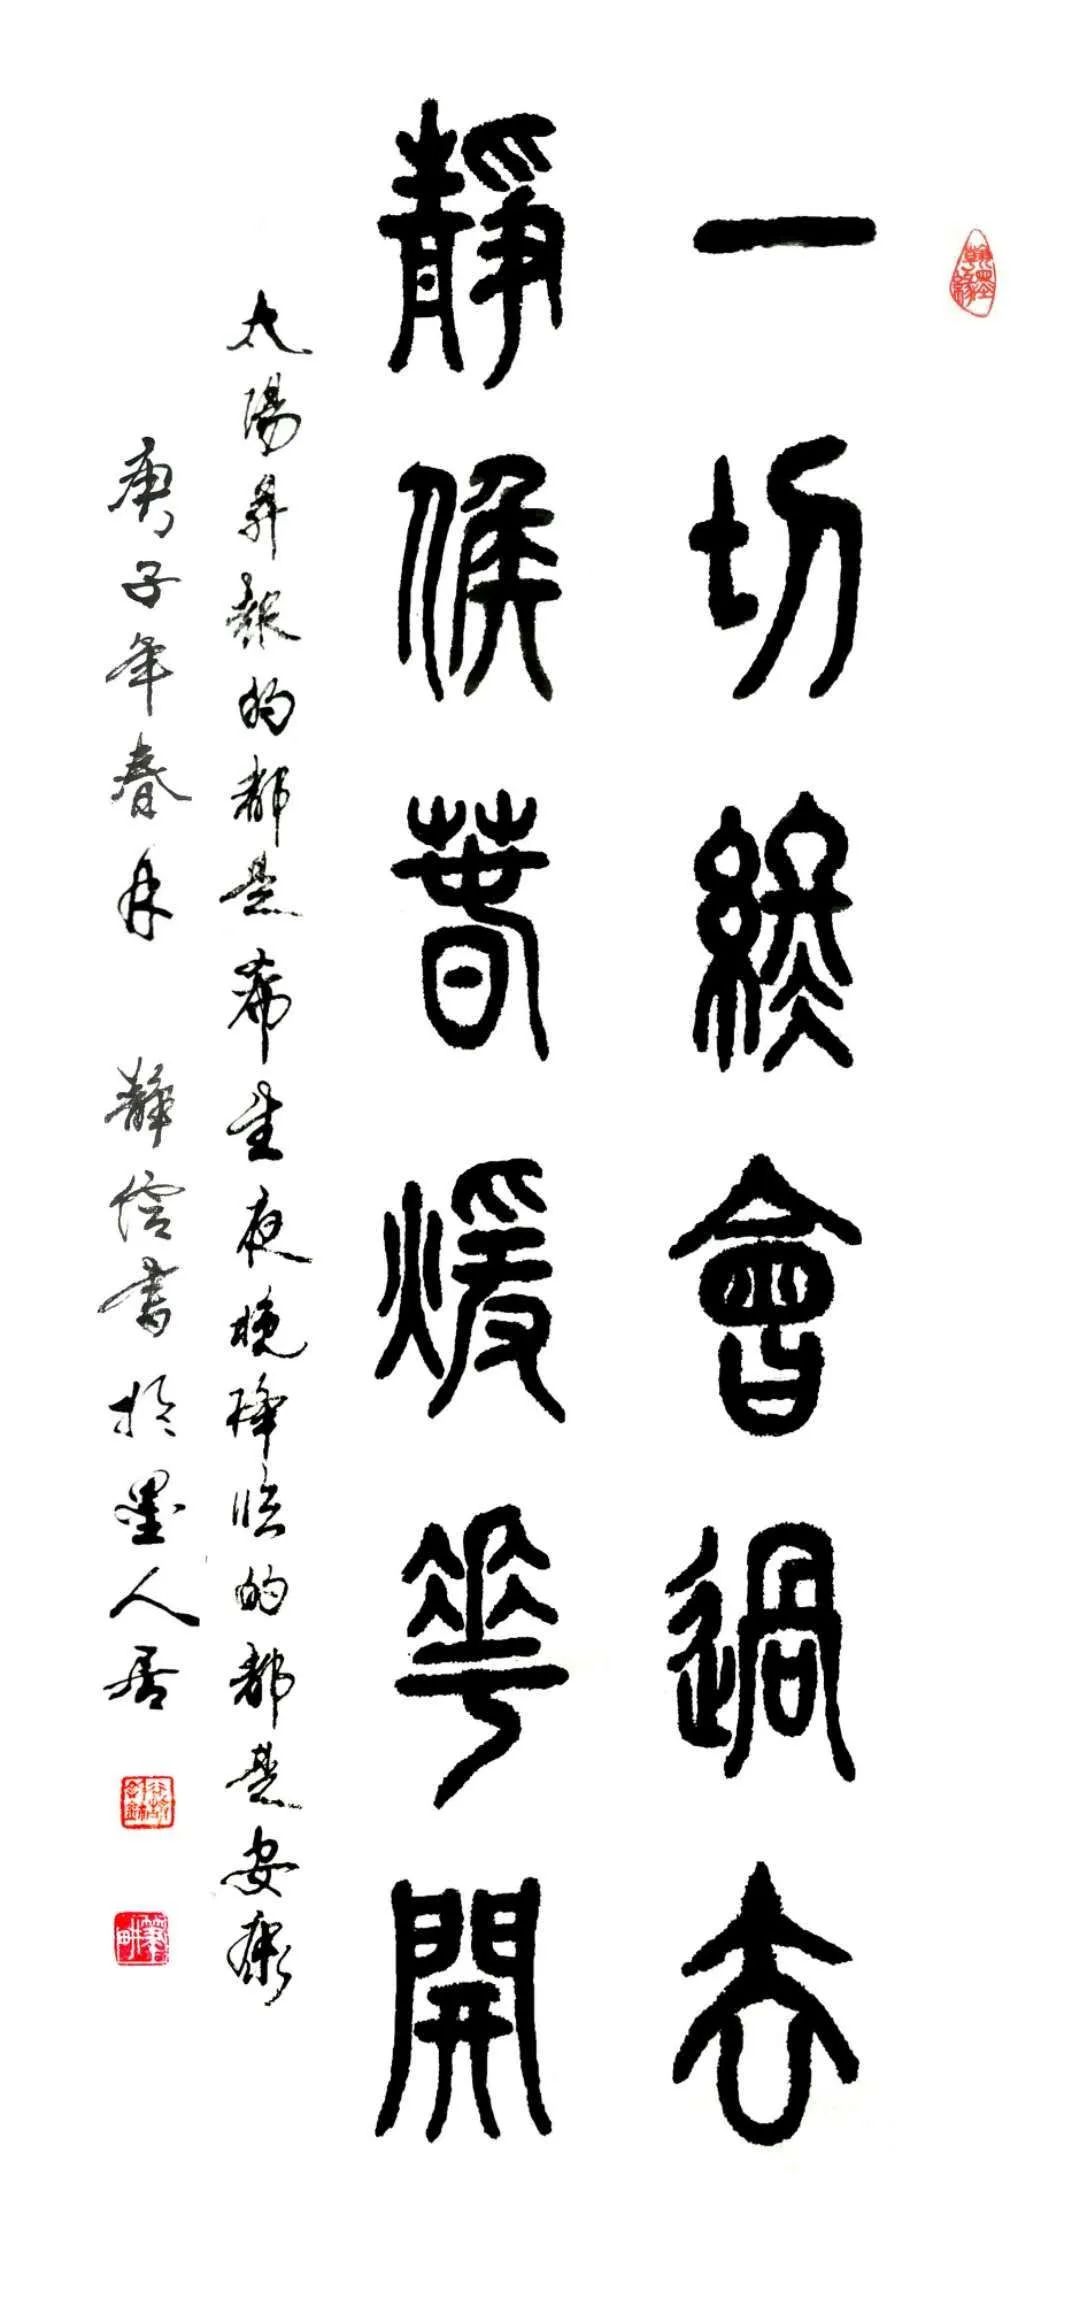 翰墨緣
一切終會過去
靜候春煖華開
太陽昇起的都是希望夜晚降臨的都是安康
庚子年春月 靜信書於墨人居